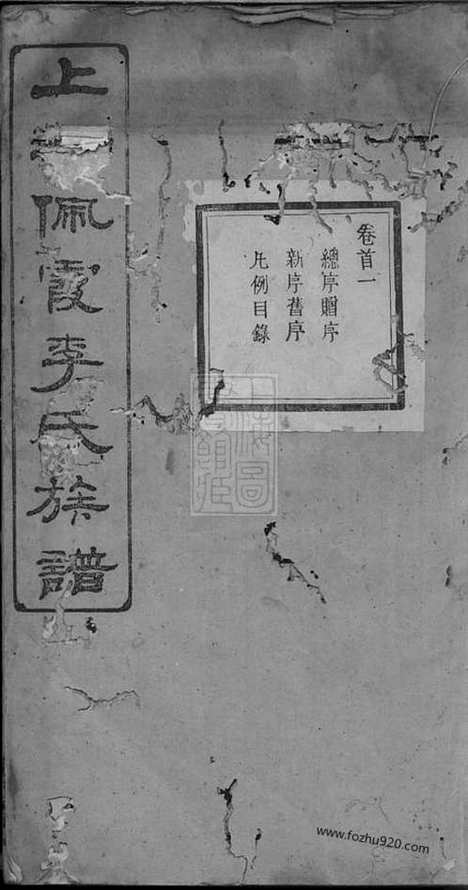 卷首一
總序贈序
新序舊序
凡例目錄
上佩霞李氏族譜
www.fozhu920.com